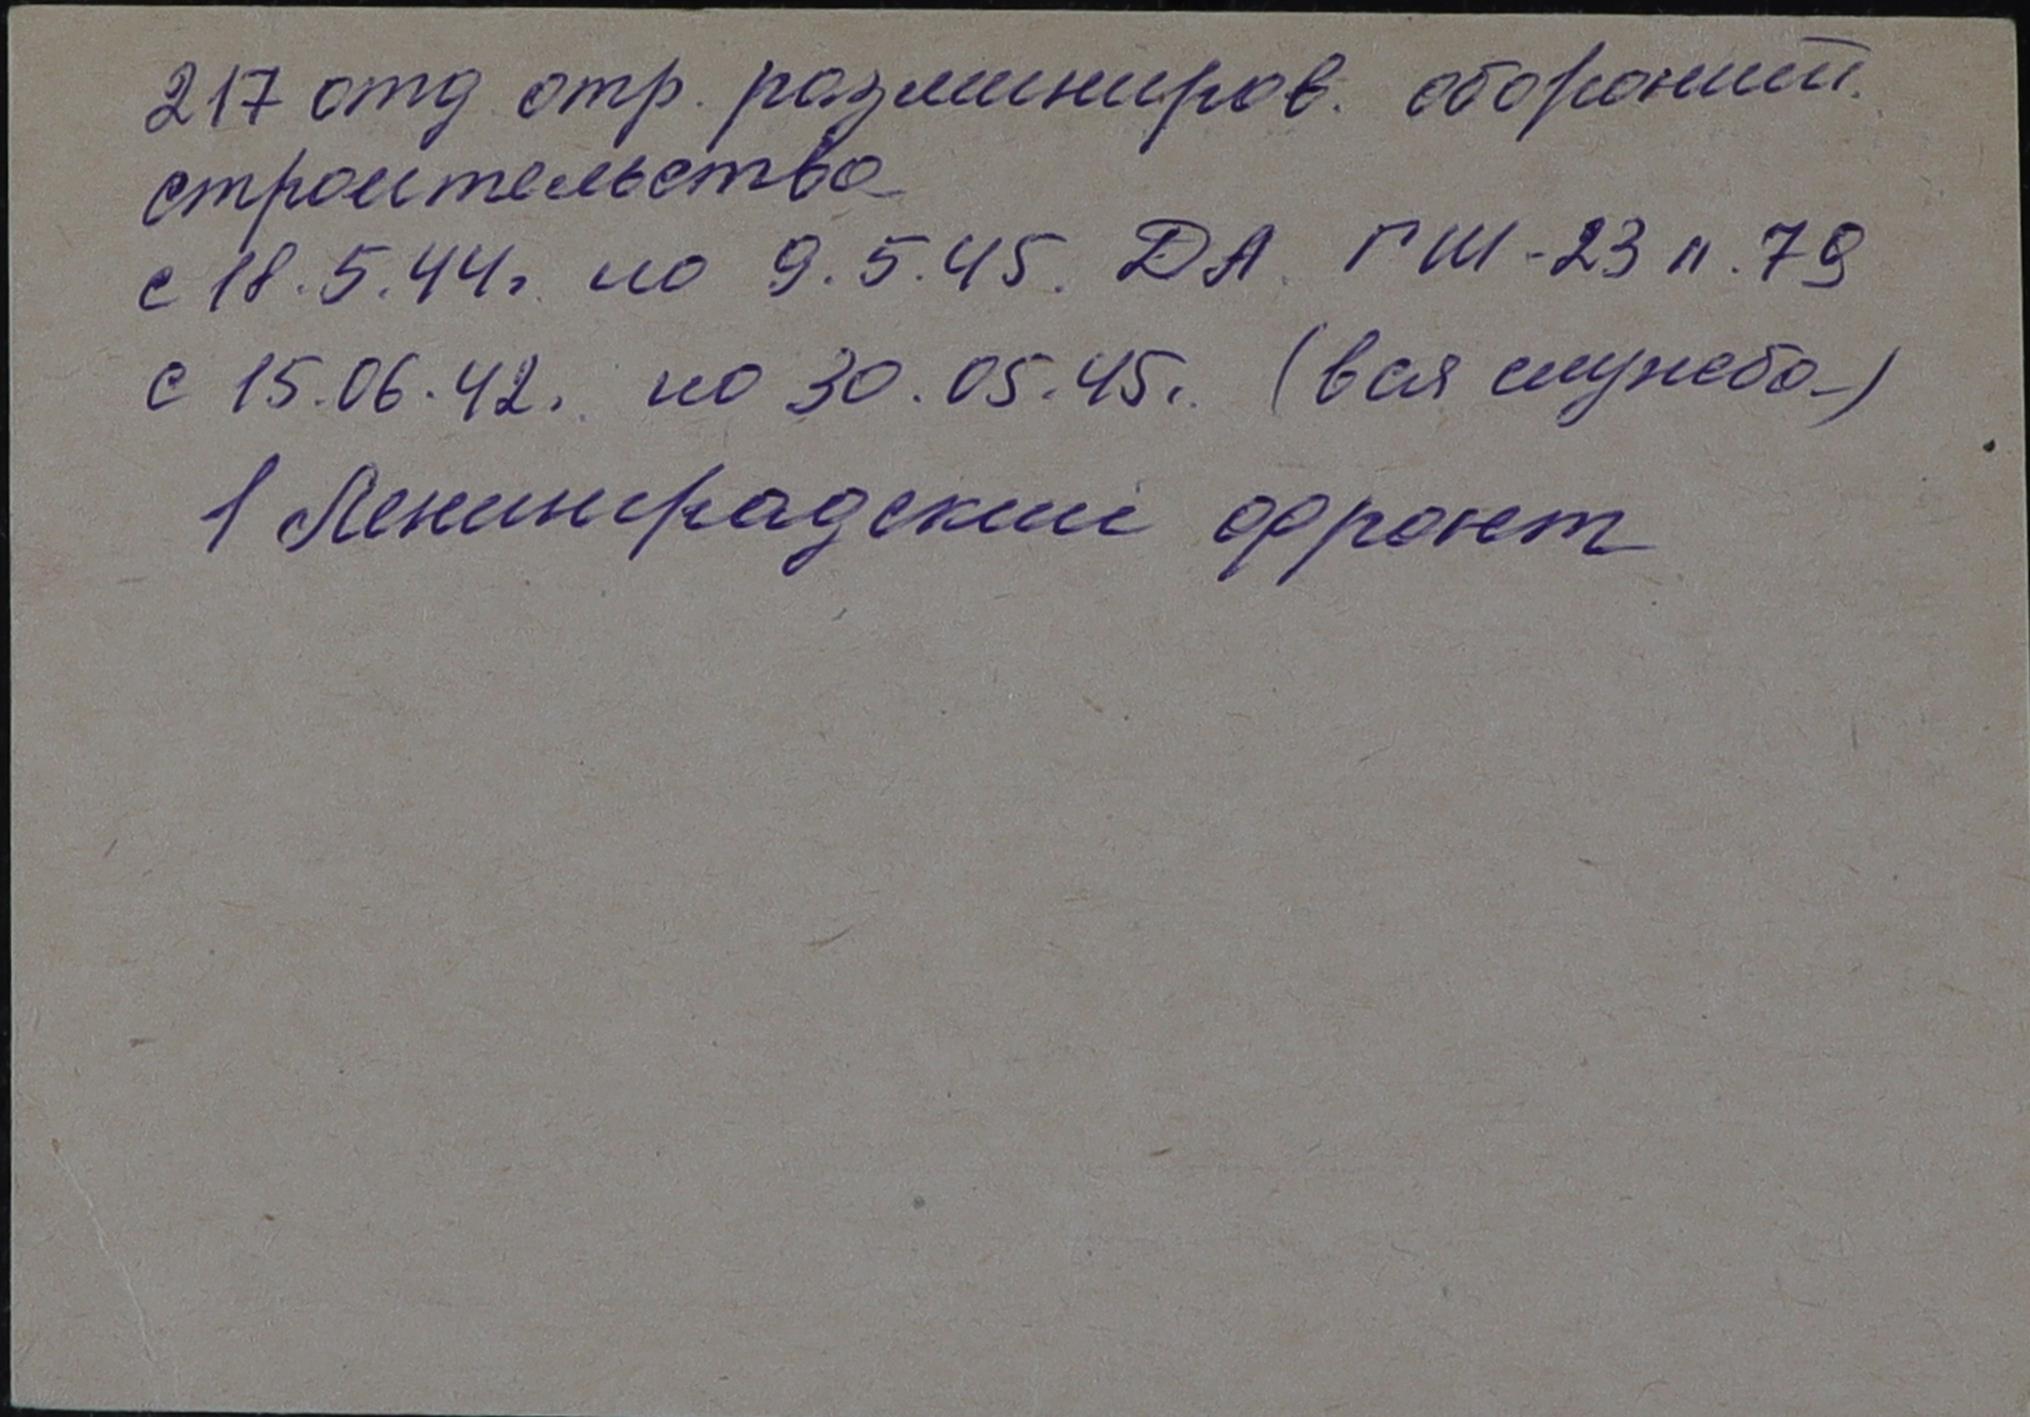 217 отд отр. разминиров. оборонит.
строительства
с 18.5.44г. по 9.5.45. ДА. ГШ-23 п.79
с 15.06.42г. по 30.05.45г. (вся служба)
1 Ленинградский фронт